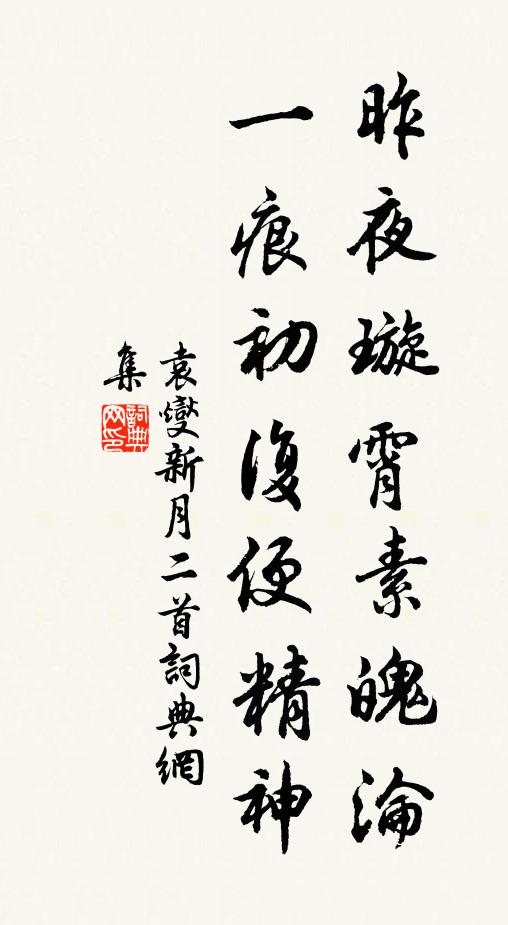 昨夜璇霄素魄淪
一痕初復便精神
袁燮新月二首詞典網
集
詞典網印